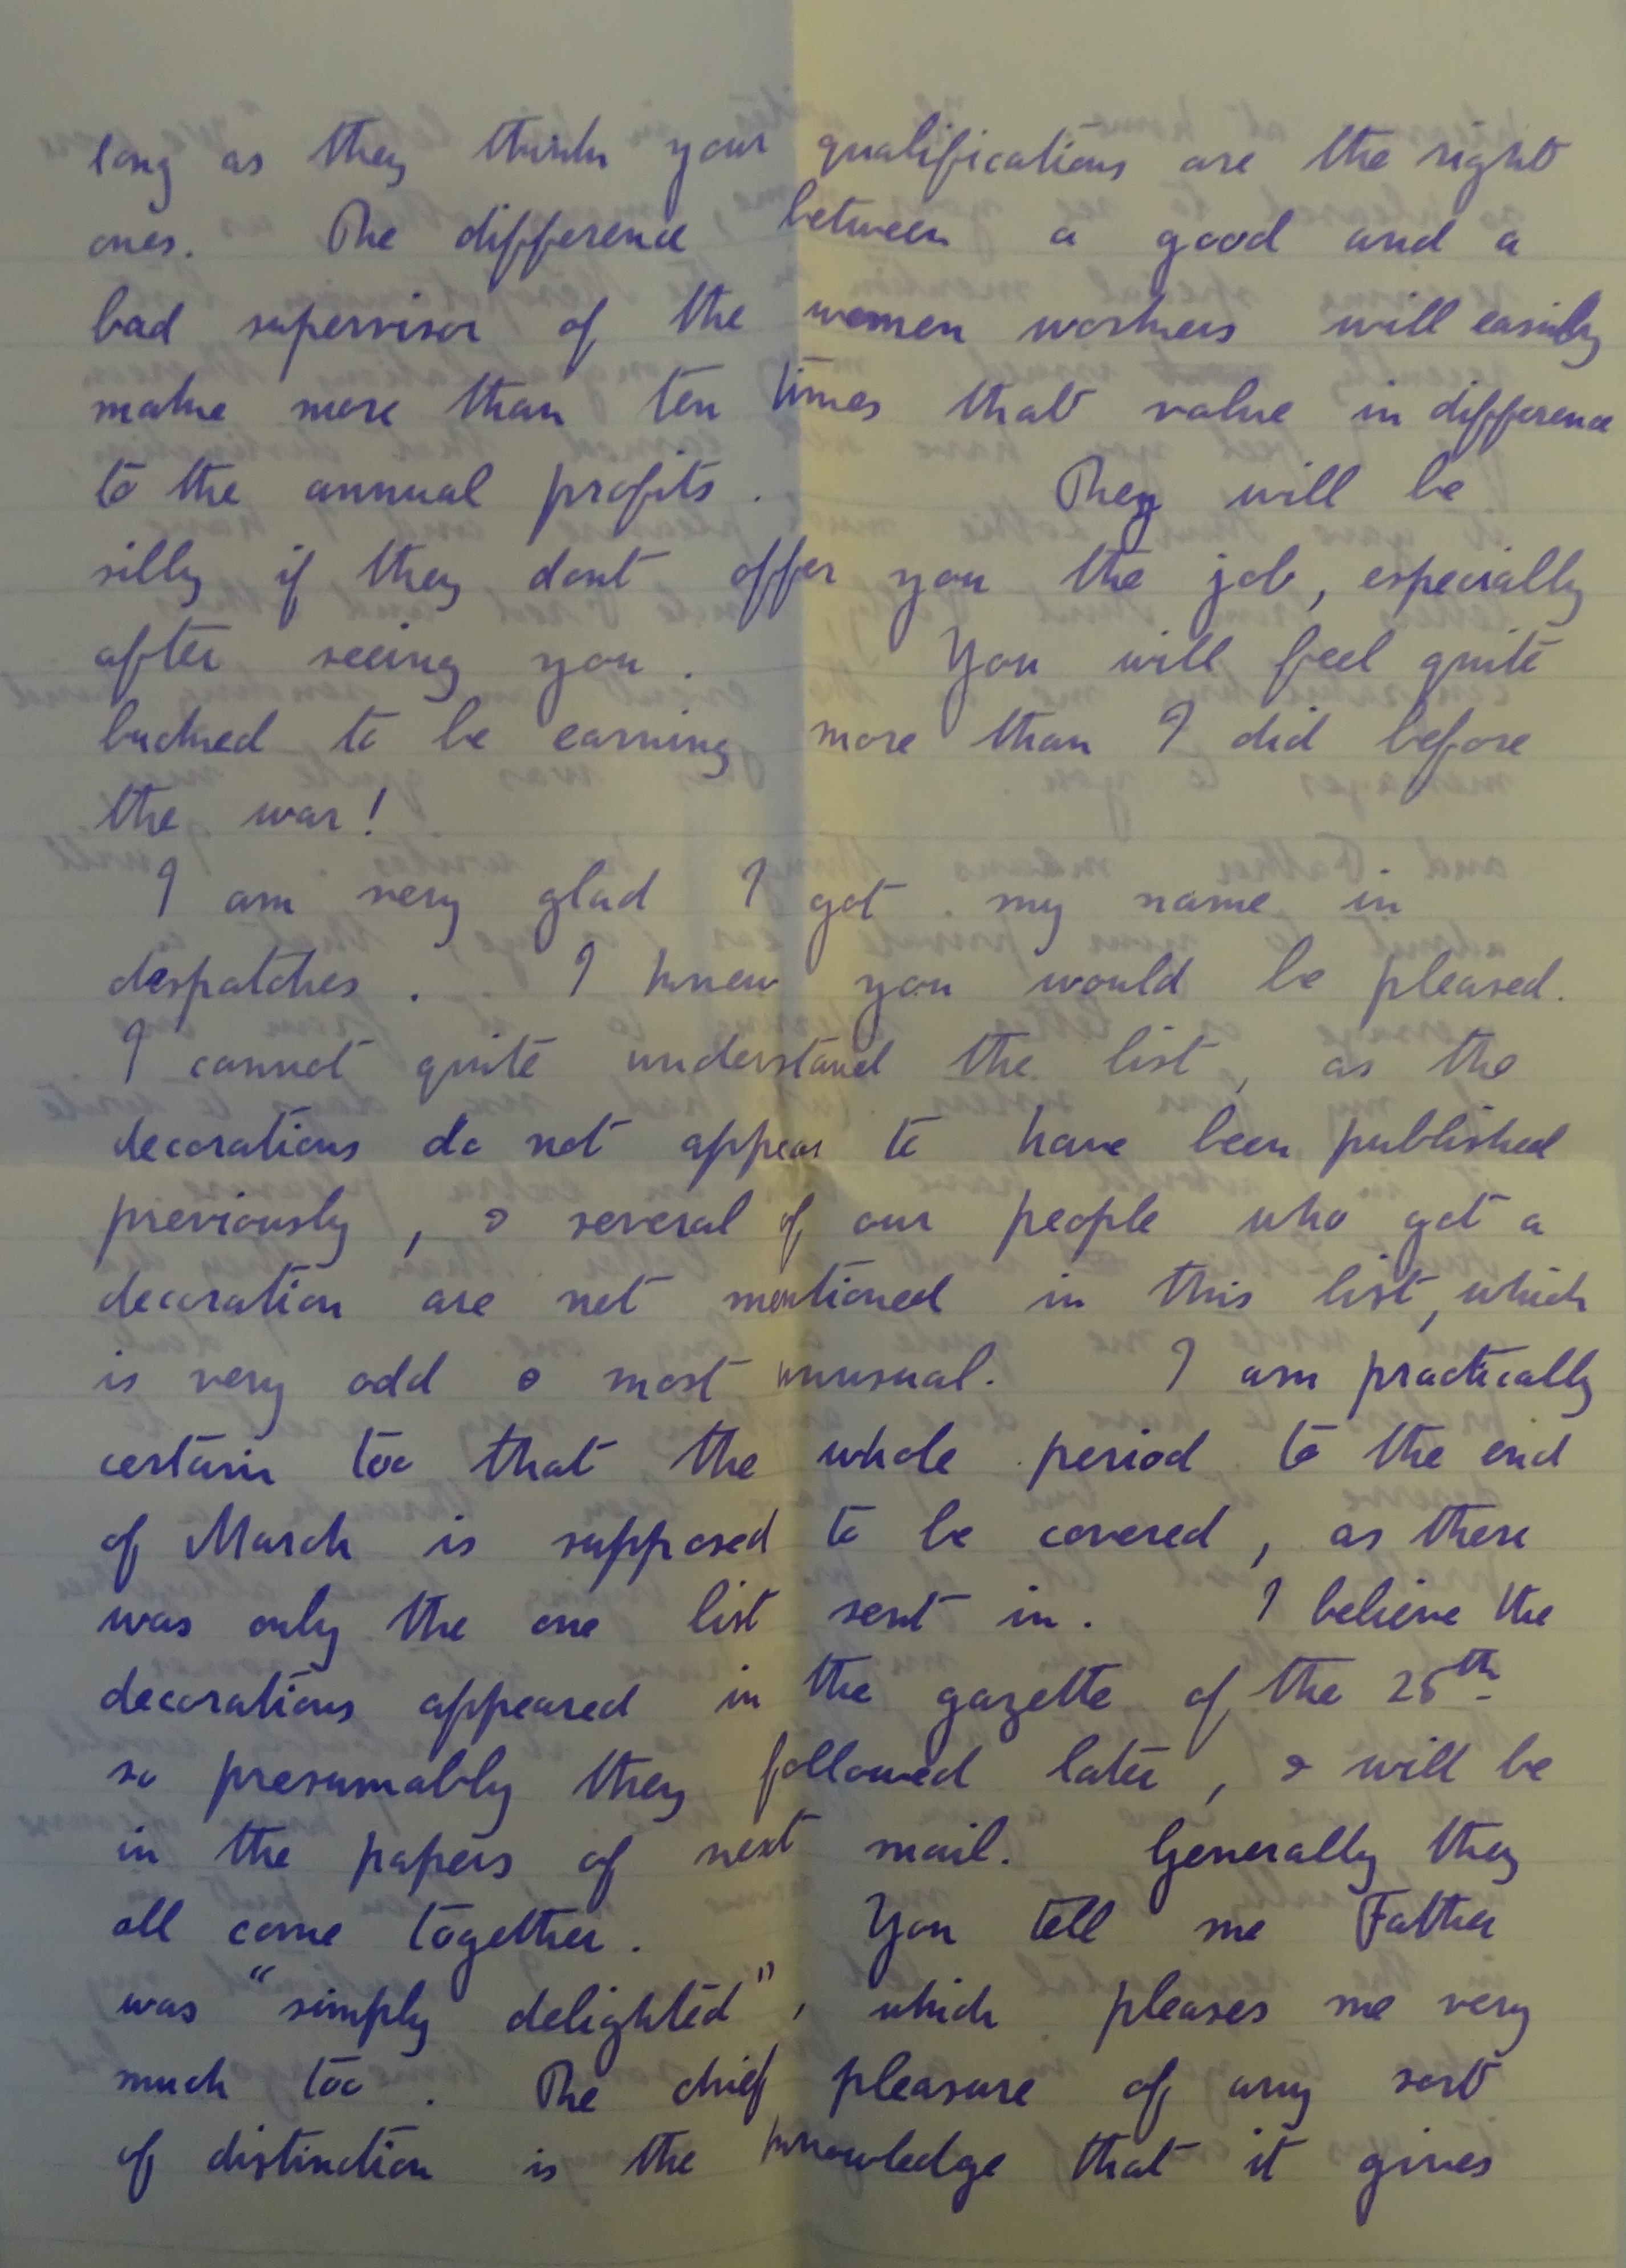 long as they think your qualifications are the right
ones. The difference between a good and a
bad supervisor of the women workers will easily
make more than ten times that value in difference
to the annual profits. They will be
silly if they dont offer you the job, especially
after seeing you. You will feel quite
bucked to be earning more than I did before
the war!
I am very glad I got my name in
despatches. I knew you would be pleased.
I cannot quite understand the list, as the
decorations do not appear to have been published
previously, & several of our people who got a
decoration are not mentioned in this list, which
is very odd & most unusual. I am practically
certain too that the whole period to the end
of March is supposed to be covered, as there
was only the one list sent in. I believe the
decorations appeared in the gazette of the 25th
so presumably they followed later, & will be
in the papers of next mail. Generally they
all come together. You tell me Father
was "simply delighted", which pleases me very
much too. The chief pleasure of any sort
of distinction is the knowledge that it gives